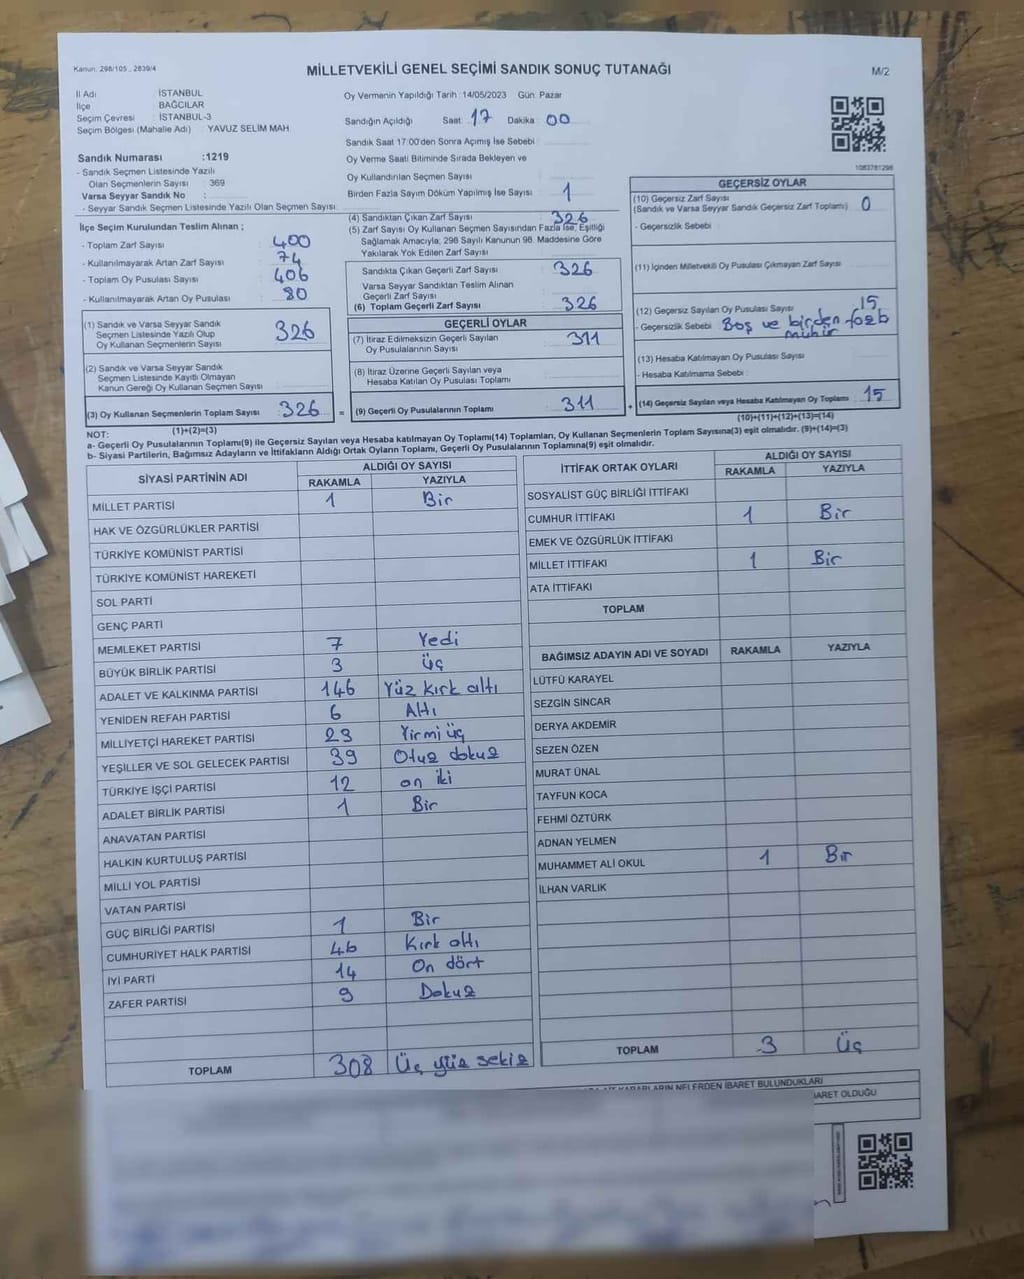 Kanun: 298/105 , 2839/4
MİLLETVEKİLİ GENEL SEÇİMİ SANDIK SONUÇ TUTANAĞI
M/2
İl Adı İSTANBUL
İlçe BAĞCILAR
Seçim Çevresi : İSTANBUL-3
Seçim Bölgesi (Mahalle Adı) : YAVUZ SELİM MAH.
Sandık Numarası :1219
- Sandık Seçmen Listesinde Yazılı
Olan Seçmenlerin Sayısı : 369
Varsa Seyyar Sandık No :
- Seyyar Sandık Seçmen Listesinde Yazılı Olan Seçmen Sayısı:
Oy Vermenin Yapıldığı Tarih :14/05/2023 Gün: Pazar
Sandığın Açıldığı Saat: 17 Dakika: 00
Sandık Saat 17:00'den Sonra Açımış İse Sebebi :
Oy Verme Saati Bitiminde Sırada Bekleyen ve
Oy Kullandırılan Seçmen Sayısı :
Birden Fazla Sayım Döküm Yapılmış İse Sayısı : 1
1083781298
İlçe Seçim Kurulundan Teslim Alınan ;
- Toplam Zarf Sayısı : 400
- Kullanılmayarak Artan Zarf Sayısı : 74
- Toplam Oy Pusulası Sayısı : 406
- Kullanılmayarak Artan Oy Pusulası : 80
(1) Sandık ve Varsa Seyyar Sandık
Seçmen Listesinde Yazılı Olup
Oy Kullanan Seçmenlerin Sayısı : 326
(2) Sandık ve Varsa Seyyar Sandık
Seçmen Listesinde Kayıtlı Olmayan
Kanun Gereği Oy Kullanan Seçmen Sayısı :
(3) Oy Kullanan Seçmenlerin Toplam Sayısı : 326 =
(1)+(2)=(3)
(4) Sandıktan Çıkan Zarf Sayısı : 326
(5) Zarf Sayısı Oy Kullanan Seçmen Sayısından Fazla İse, Eşitliği
Sağlamak Amacıyla, 298 Sayılı Kanunun 98. Maddesine Göre
Yakılarak Yok Edilen Zarf Sayısı :
Sandıkta Çıkan Geçerli Zarf Sayısı : 326
Varsa Seyyar Sandıktan Teslim Alınan
Geçerli Zarf Sayısı :
(6) Toplam Geçerli Zarf Sayısı : 326
GEÇERLİ OYLAR
(7) İtiraz Edilmeksizin Geçerli Sayılan
Oy Pusulalarının Sayısı : 311
(8) İtiraz Üzerine Geçerli Sayılan veya
Hesaba Katılan Oy Pusulası Toplamı :
(9) Geçerli Oy Pusulalarının Toplamı : 311 +
GEÇERSİZ OYLAR
(10) Geçersiz Zarf Sayısı
(Sandık ve Varsa Seyyar Sandık Geçersiz Zarf Toplamı) : 0
- Geçersizlik Sebebi :
(11) İçinden Milletvekili Oy Pusulası Çıkmayan Zarf Sayısı :
(12) Geçersiz Sayılan Oy Pusulası Sayısı : 15
- Geçersizlik Sebebi : Boş ve birden fazla
mühür
(13) Hesaba Katılmayan Oy Pusulası Sayısı :
- Hesaba Katılmama Sebebi :
(14) Geçersiz Sayılan veya Hesaba Katılmayan Oy Toplamı : 15
(10)+(11)+(12)+(13)=(14)
NOT:
a- Geçerli Oy Pusulalarının Toplamı(9) ile Geçersiz Sayılan veya Hesaba katılmayan Oy Toplamı(14) Toplamları, Oy Kullanan Seçmenlerin Toplam Sayısına(3) eşit olmalıdır. (9)+(14)=(3)
b- Siyasi Partilerin, Bağımsız Adayların ve İttifakların Aldığı Ortak Oyların Toplamı, Geçerli Oy Pusulalarının Toplamına(9) eşit olmalıdır.
SİYASİ PARTİNİN ADI ALDIĞI OY SAYISI
RAKAMLA YAZIYLA
MİLLET PARTİSİ 1 Bir
HAK VE ÖZGÜRLÜKLER PARTİSİ
TÜRKİYE KOMÜNİST PARTİSİ
TÜRKİYE KOMÜNİST HAREKETİ
SOL PARTİ
GENÇ PARTİ
MEMLEKET PARTİSİ 7 Yedi
BÜYÜK BİRLİK PARTİSİ 3 üç
ADALET VE KALKINMA PARTİSİ 146 Yüz kırk altı
YENİDEN REFAH PARTİSİ 6 Altı
MİLLİYETÇİ HAREKET PARTİSİ 23 Yirmi üç
YEŞİLLER VE SOL GELECEK PARTİSİ 39 Otuz dokuz
TÜRKİYE İŞÇİ PARTİSİ 12 on iki
ADALET BİRLİK PARTİSİ 1 Bir
ANAVATAN PARTİSİ
HALKIN KURTULUŞ PARTİSİ
MİLLİ YOL PARTİSİ
VATAN PARTİSİ
GÜÇ BİRLİĞİ PARTİSİ 1 Bir
CUMHURİYET HALK PARTİSİ 46 Kırk altı
İYİ PARTİ 14 On dört
ZAFER PARTİSİ 9 Dokuz
TOPLAM 308 Üç yüz sekiz
İTTİFAK ORTAK OYLARI ALDIĞI OY SAYISI
RAKAMLA YAZIYLA
SOSYALİST GÜÇ BİRLİĞİ İTTİFAKI
CUMHUR İTTİFAKI 1 Bir
EMEK VE ÖZGÜRLÜK İTTİFAKI
MİLLET İTTİFAKI 1 Bir
ATA İTTİFAKI
TOPLAM
BAĞIMSIZ ADAYIN ADI VE SOYADI RAKAMLA YAZIYLA
LÜTFÜ KARAYEL
SEZGİN SİNCAR
DERYA AKDEMİR
SEZEN ÖZEN
MURAT ÜNAL
TAYFUN KOCA
FEHMİ ÖZTÜRK
ADNAN YELMEN
MUHAMMET ALİ OKUL 1 Bir
İLHAN VARLIK
TOPLAM 3 Üç
KARARLARIN NELERDEN İBARET BULUNDUKLARI
İBARET OLDUĞU